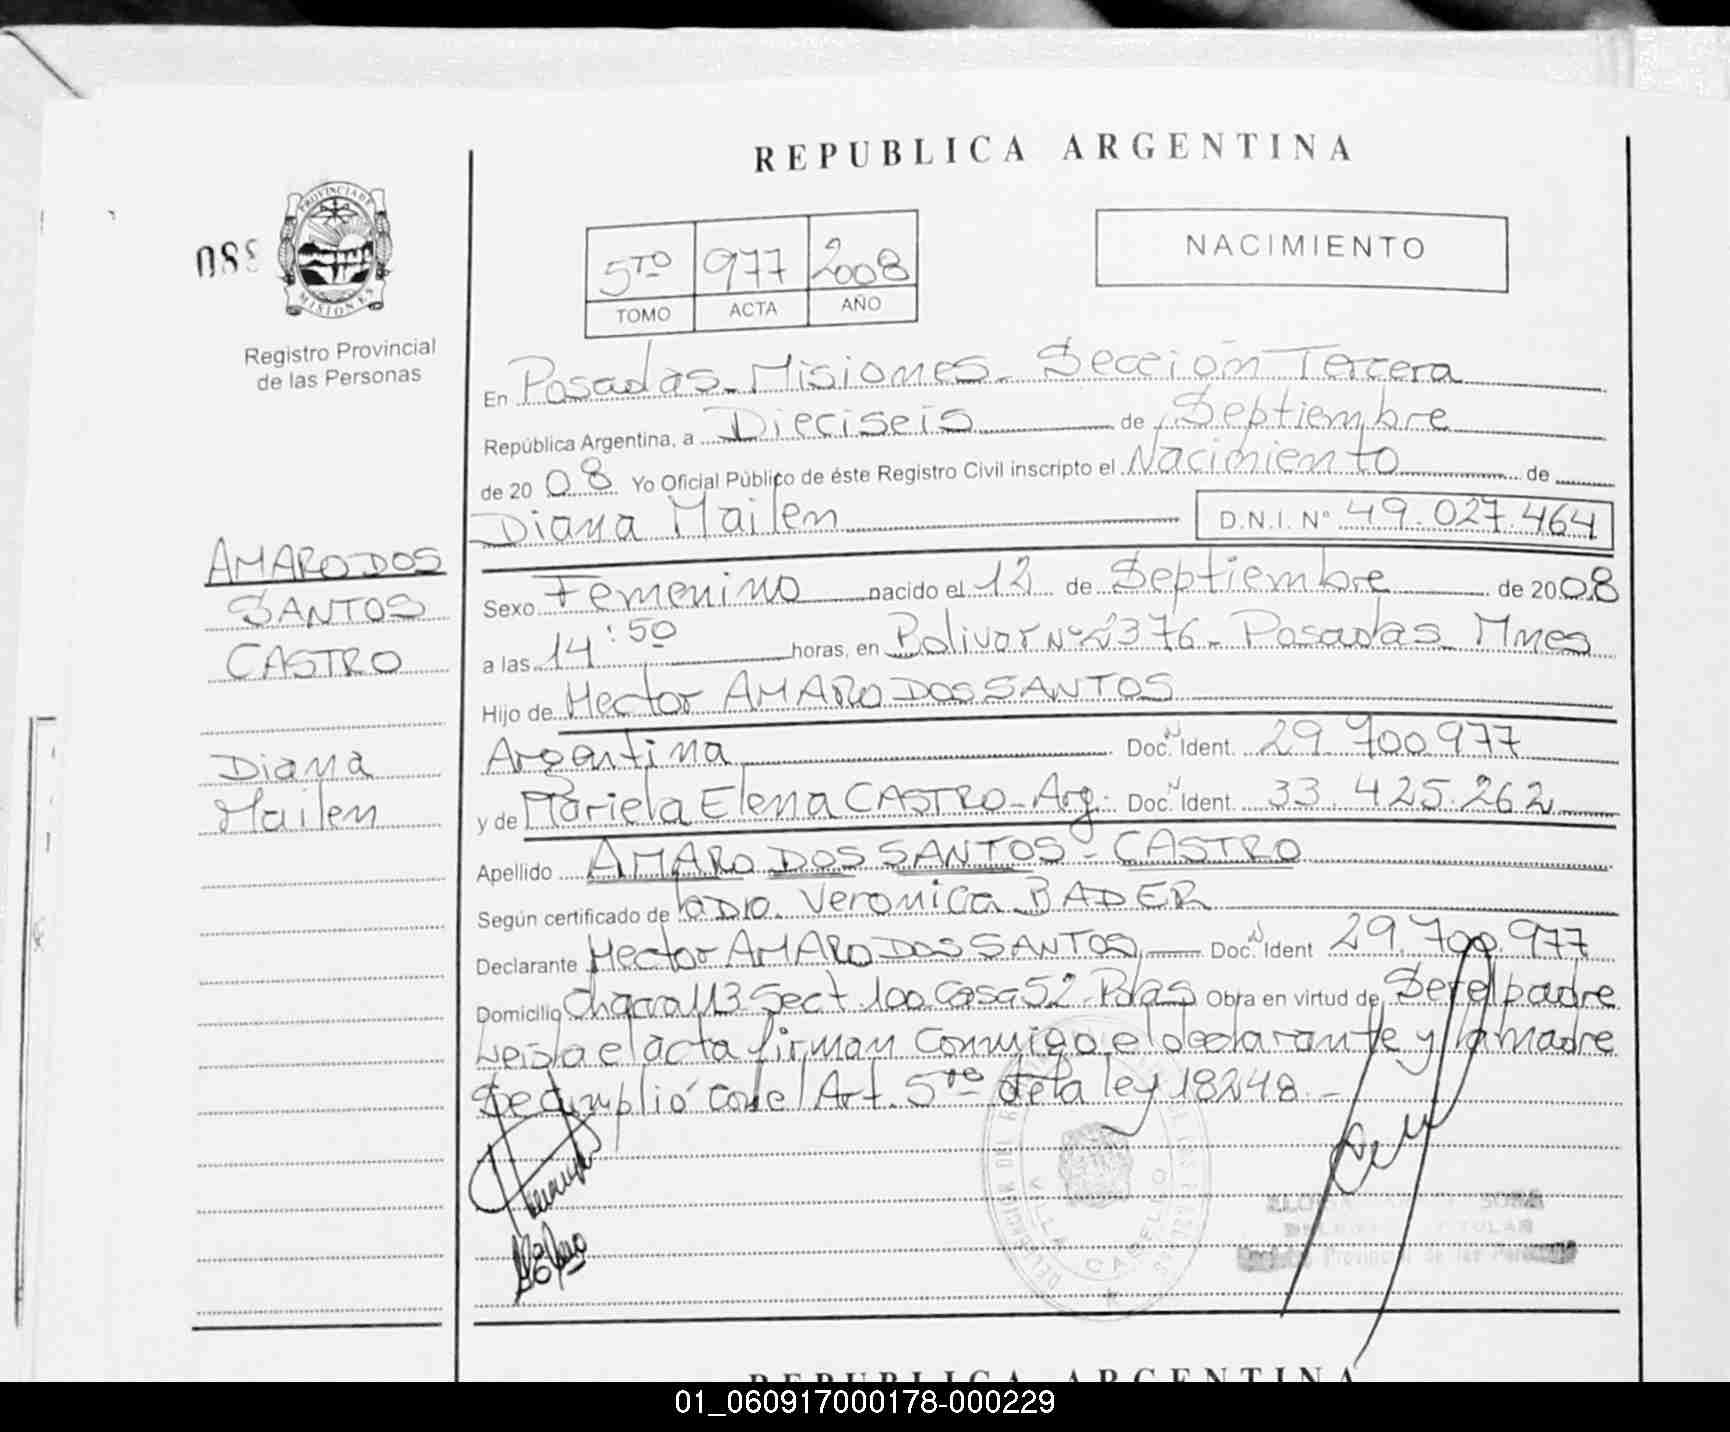 REPUBLICA ARGENTINA
PROVINCIA DE
MISIONES
Registro Provincial
de las Personas
5TO 977 2008
TOMO ACTA AÑO
NACIMIENTO
En Posadas Misiones - Sección Tercera
República Argentina, a Dieciseis de Septiembre
de 2008 Yo Oficial Público de éste Registro Civil inscripto el Nacimiento de
Diana Mailen D.N.I. N° 49.027.464
AMARO DOS
SANTOS
CASTRO
Diana
Mailen
Sexo Femenino nacido el 12 de Septiembre de 2008
a las 14:50 horas, en Bolivar N° 2376 - Posadas Mnes
Hijo de Hector AMARO DOS SANTOS
Argentina Doc. Ident. 29.700.977
y de Mariela Elena CASTRO - Arg. Doc. Ident. 33.425.262
Apellido AMARO DOS SANTOS - CASTRO
Según certificado de Veronica BADER
Declarante Hector AMARO DOS SANTOS Doc. Ident 29.700.977
Domicilio Chacra 113 Sect. 100 Casa 52 - Pdas Obra en virtud de Ser el padre
Leida el acta firman conmigo el declarante y la madre
Se cumplió con el Art. 5to de la ley 18248. -
VILLA CABELLO
Provincial de las Personas
REPUBLICA ARGENTINA
01_060917000178-000229